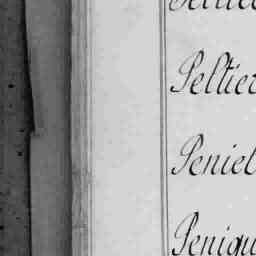 Peltier
Peniel
Penigu